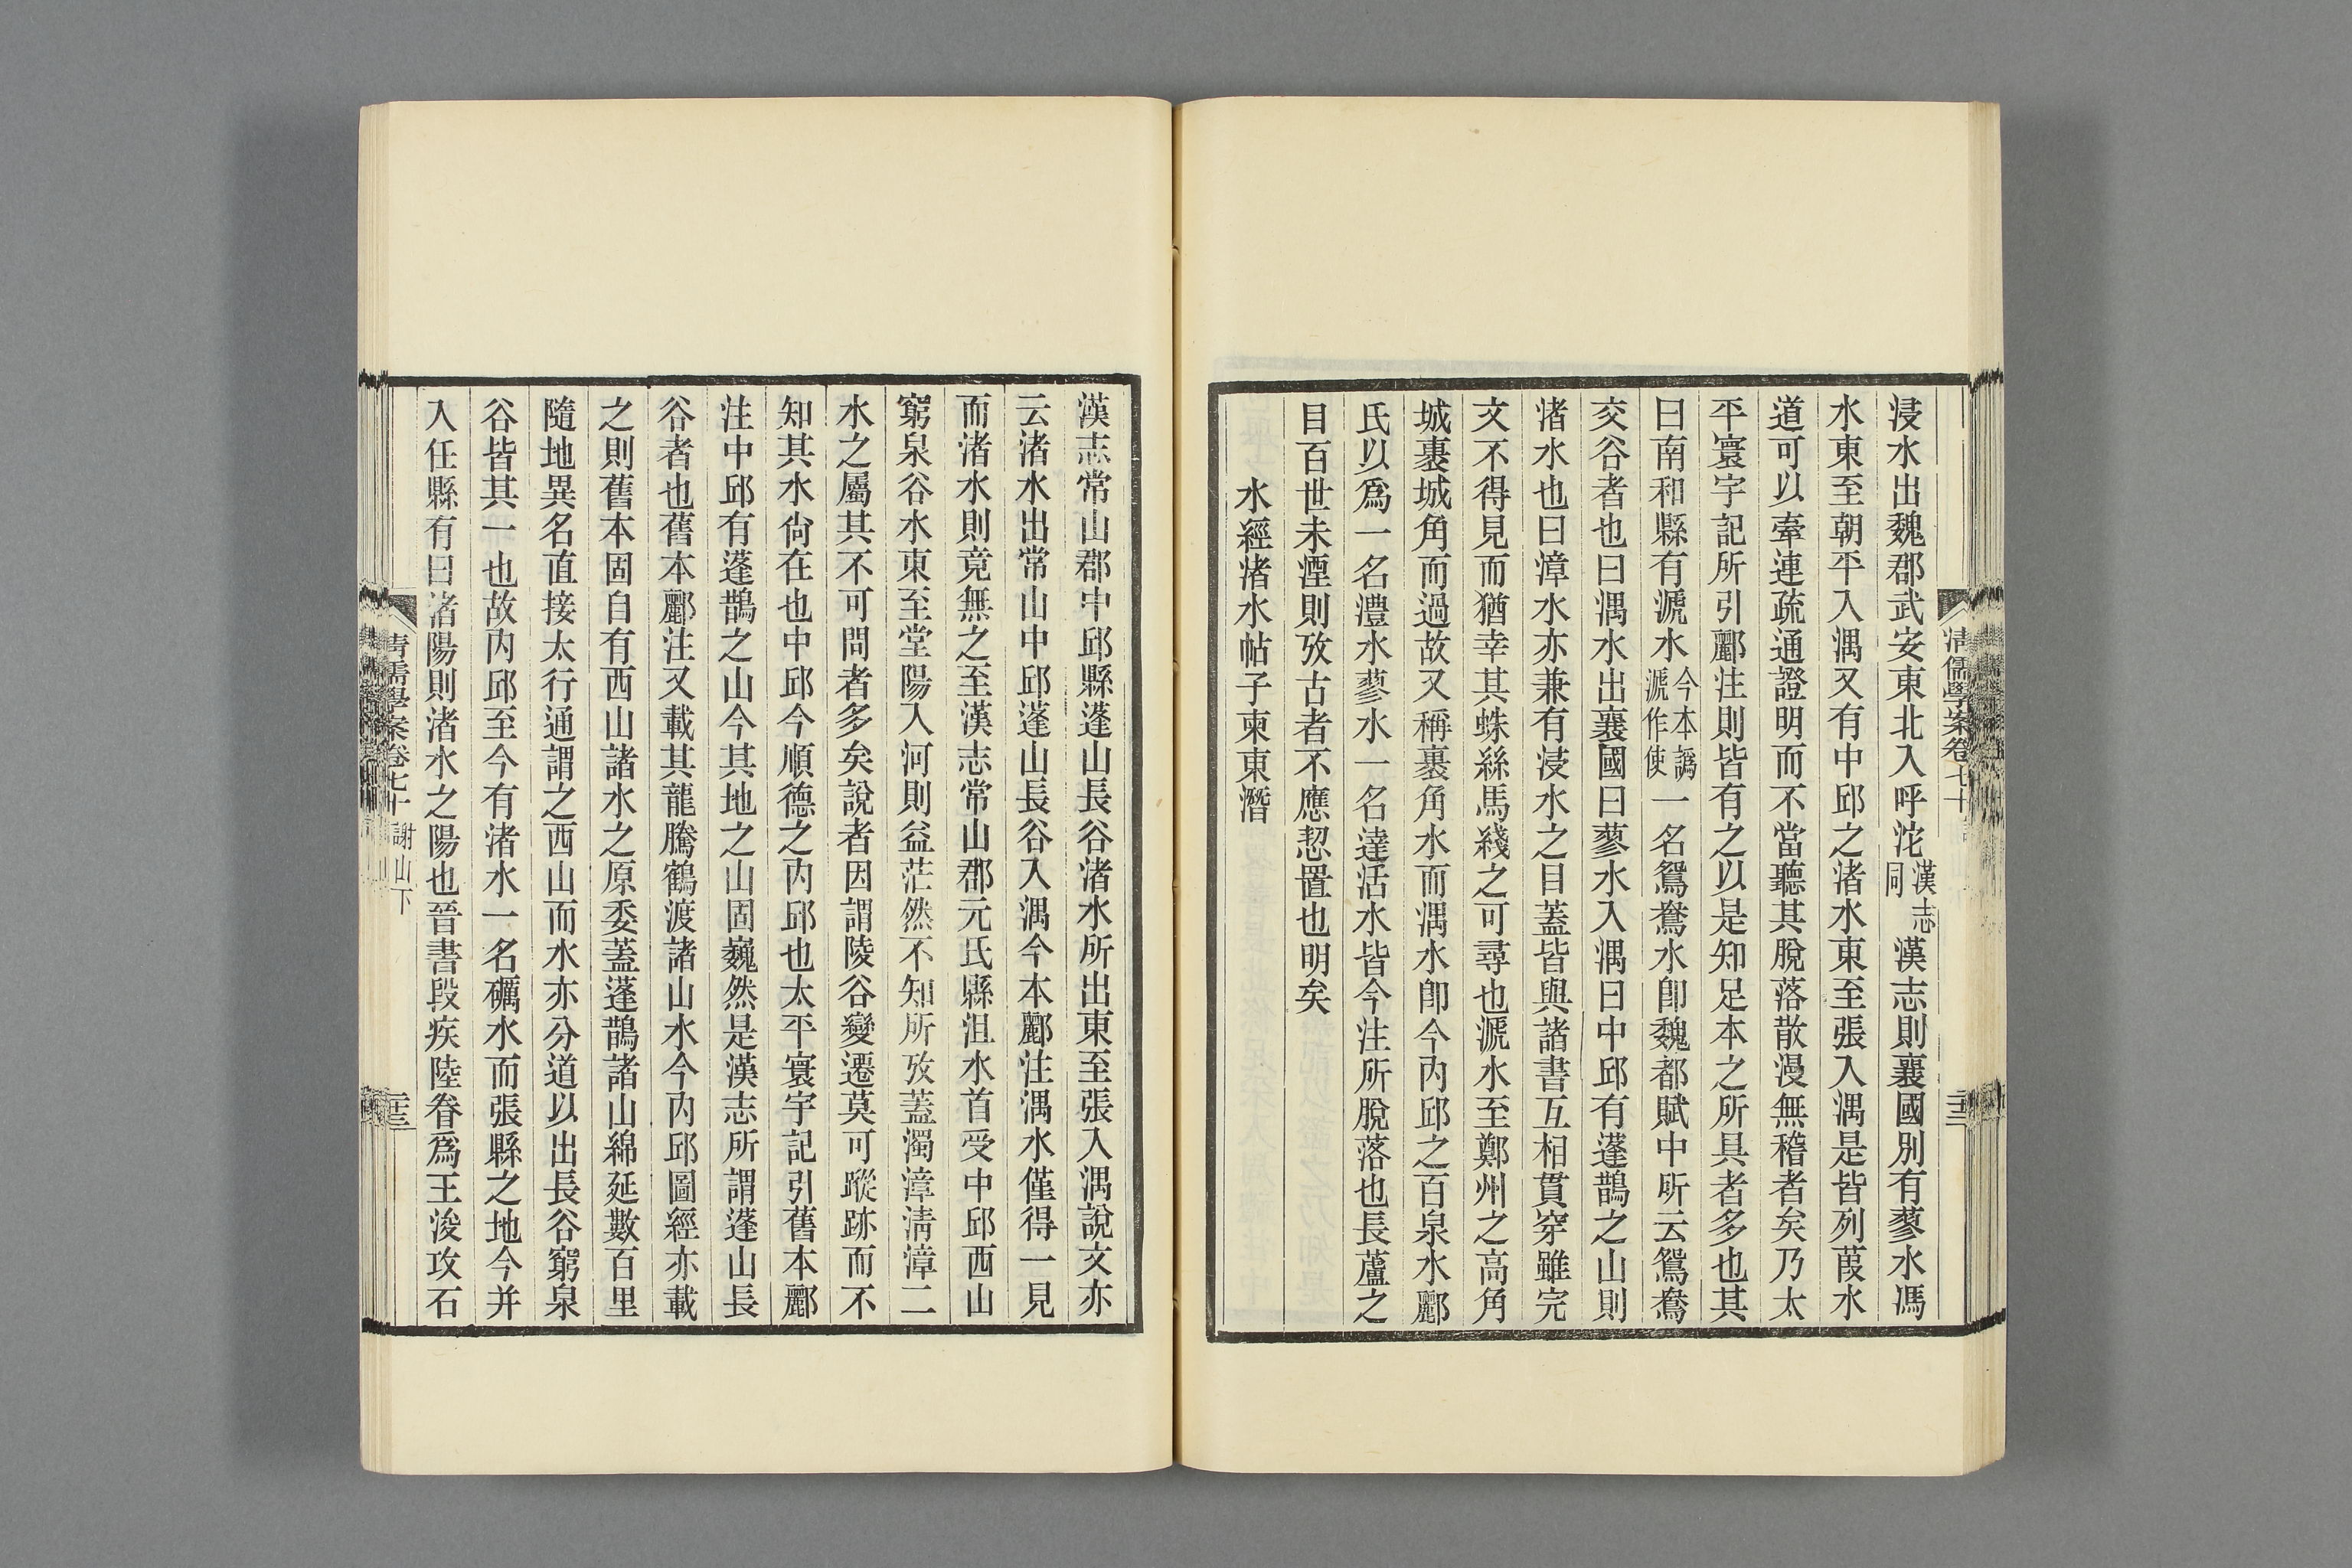 清儒學案卷七十
浸水出魏郡武安東北入呼沱漢志同漢志則襄國別有蓼水馮
水東至朝平入渪又有中邱之渚水東至張入渪是皆列葭水
道可以牽連疏通證明而不當聽其脫落散漫無稽者矣乃太
平寰宇記所引酈注則皆有之以是知足本之所具者多也其
曰南和縣有㴲水今本譌㴲作使一名鴛鴦水卽魏都賦中所云鴛鴦
交谷者也曰渪水出襄國曰蓼水入渪曰中邱有蓬鵲之山則
渚水也曰漳水亦兼有浸水之目蓋皆與諸書互相貫穿雖完
文不得見而猶幸其蛛絲馬綫之可尋也㴲水至鄭州之高角
城裹城角而過故又稱裹角水而渪水卽今內邱之百泉水酈
氏以爲一名澧水蓼水一名達活水皆今注所脫落也長蘆之
目百世未湮則攷古者不應恝置也明矣
水經渚水帖子柬東潛
漢志常山郡中邱縣蓬山長谷渚水所出東至張入渪說文亦
云渚水出常山中邱蓬山長谷入渪今本酈注渪水僅得一見
而渚水則竟無之至漢志常山郡元氏縣沮水首受中邱西山
窮泉谷水東至堂陽入河則益茫然不知所攷蓋濁漳淸漳二
水之屬其不可問者多矣說者因謂陵谷變遷莫可蹤跡而不
知其水尙在也中邱今順德之內邱也太平寰宇記引舊本酈
注中邱有蓬鵲之山今其地之山固巍然是漢志所謂蓬山長
谷者也舊本酈注又載其龍騰鶴渡諸山水今內邱圖經亦載
之則舊本固自有西山諸水之原委蓋蓬鵲諸山綿延數百里
隨地異名直接太行通謂之西山而水亦分道以出長谷窮泉
谷皆其一也故內邱至今有渚水一名礪水而張縣之地今并
入任縣有曰渚陽則渚水之陽也晉書段疾陸眷爲王浚攻石
清儒學案卷七十 謝山下